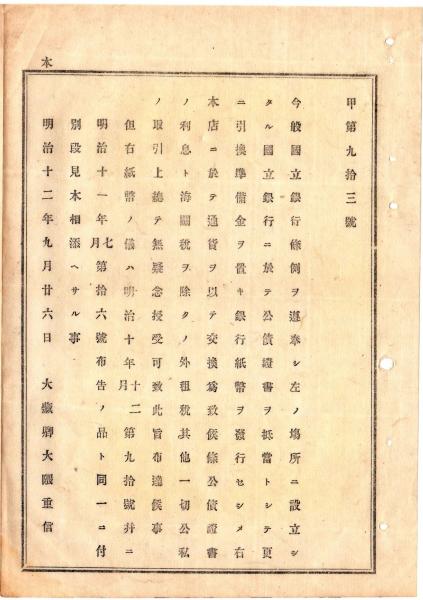 甲第九拾三號
今般國立銀行條例ヲ遵奉シ左ノ塲所ニ設立シ
タル國立銀行ニ於テ公債證書ヲ抵當トシテ更
ニ引換準備金ヲ置キ銀行紙幣ヲ發行セシメ右
本店ニ於テ通貨ヲ以テ交換爲致候條公債證書
ノ利息ト海關稅ヲ除クノ外租稅其他一切公私
ノ取引上總テ無疑念授受可致此旨布達候事
但右紙幣ノ儀ハ明治十年十二月第九拾號幷ニ
明治十一年七月第拾六號布告ノ品ト同一ニ付
別段見本相添ヘサル事
明治十二年九月廿六日 大藏卿大隈重信
本